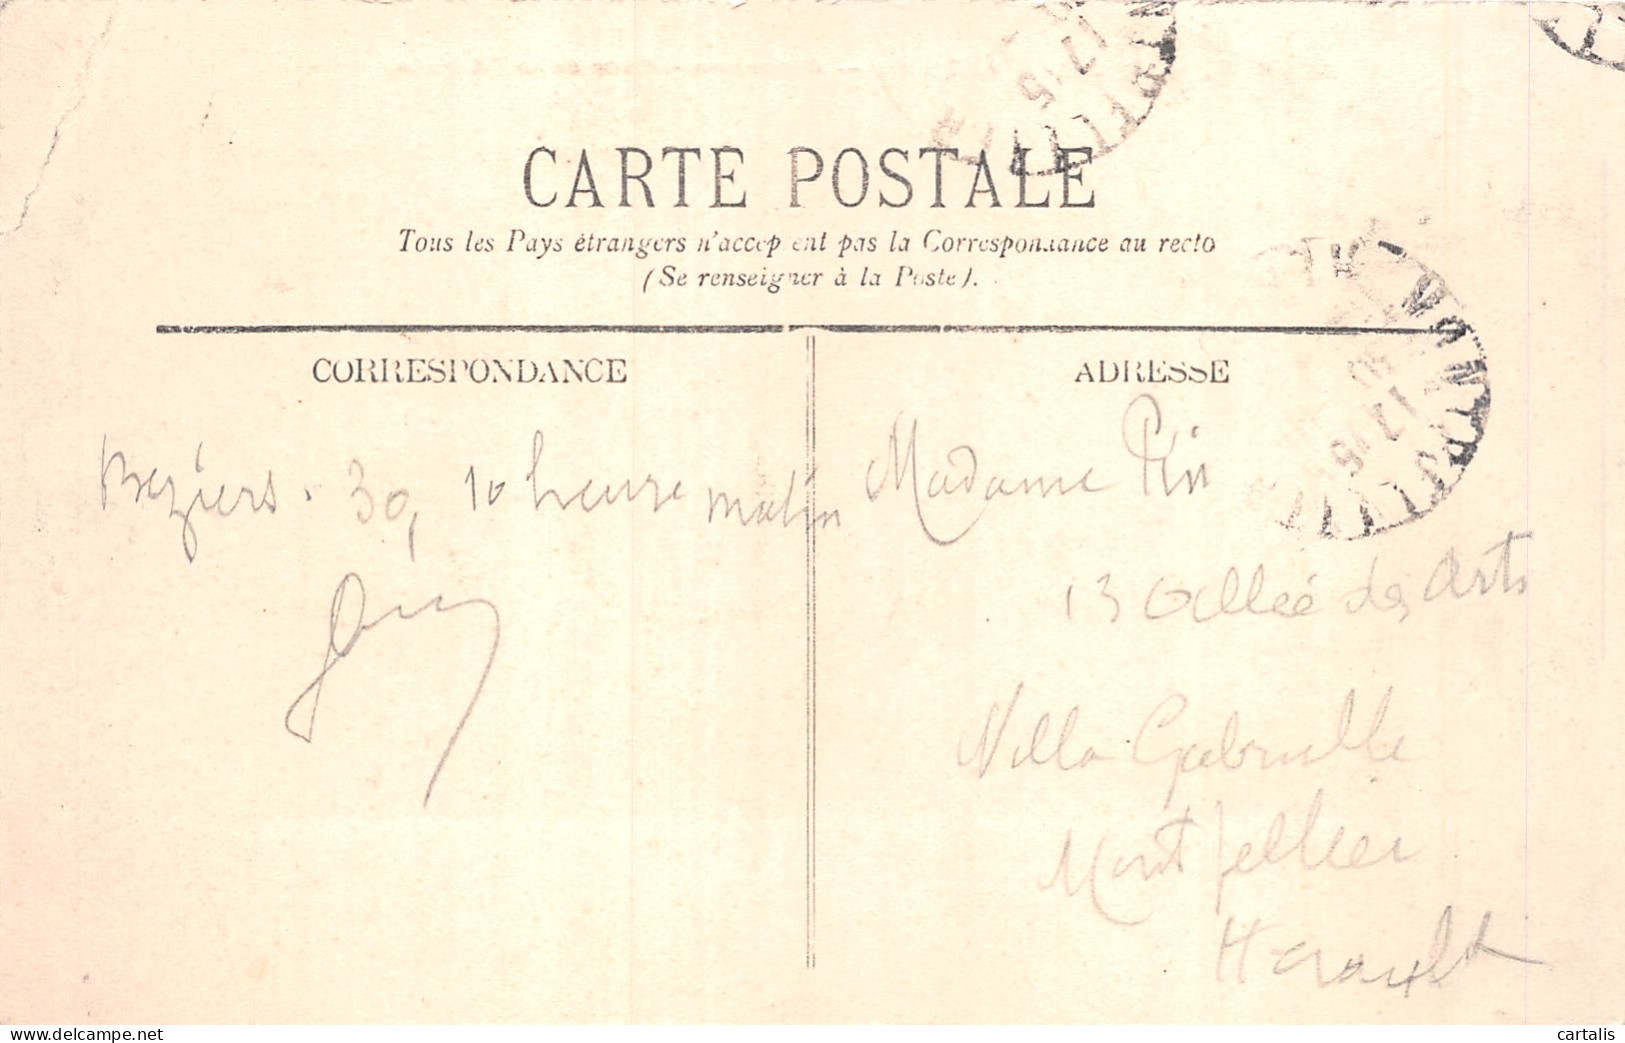 CARTE POSTALE
Tous les Pays étrangers n'acceptent pas la Correspondance au recto
(Se renseigner à la Poste).
CORRESPONDANCE
Beziers. 30, 10 heure matin
ADRESSE
Madame Pin
13 Allée des Arts
Villa Gabrielle
Montpellier
Herault
17 15
17 15
cartalis
delcampe.net